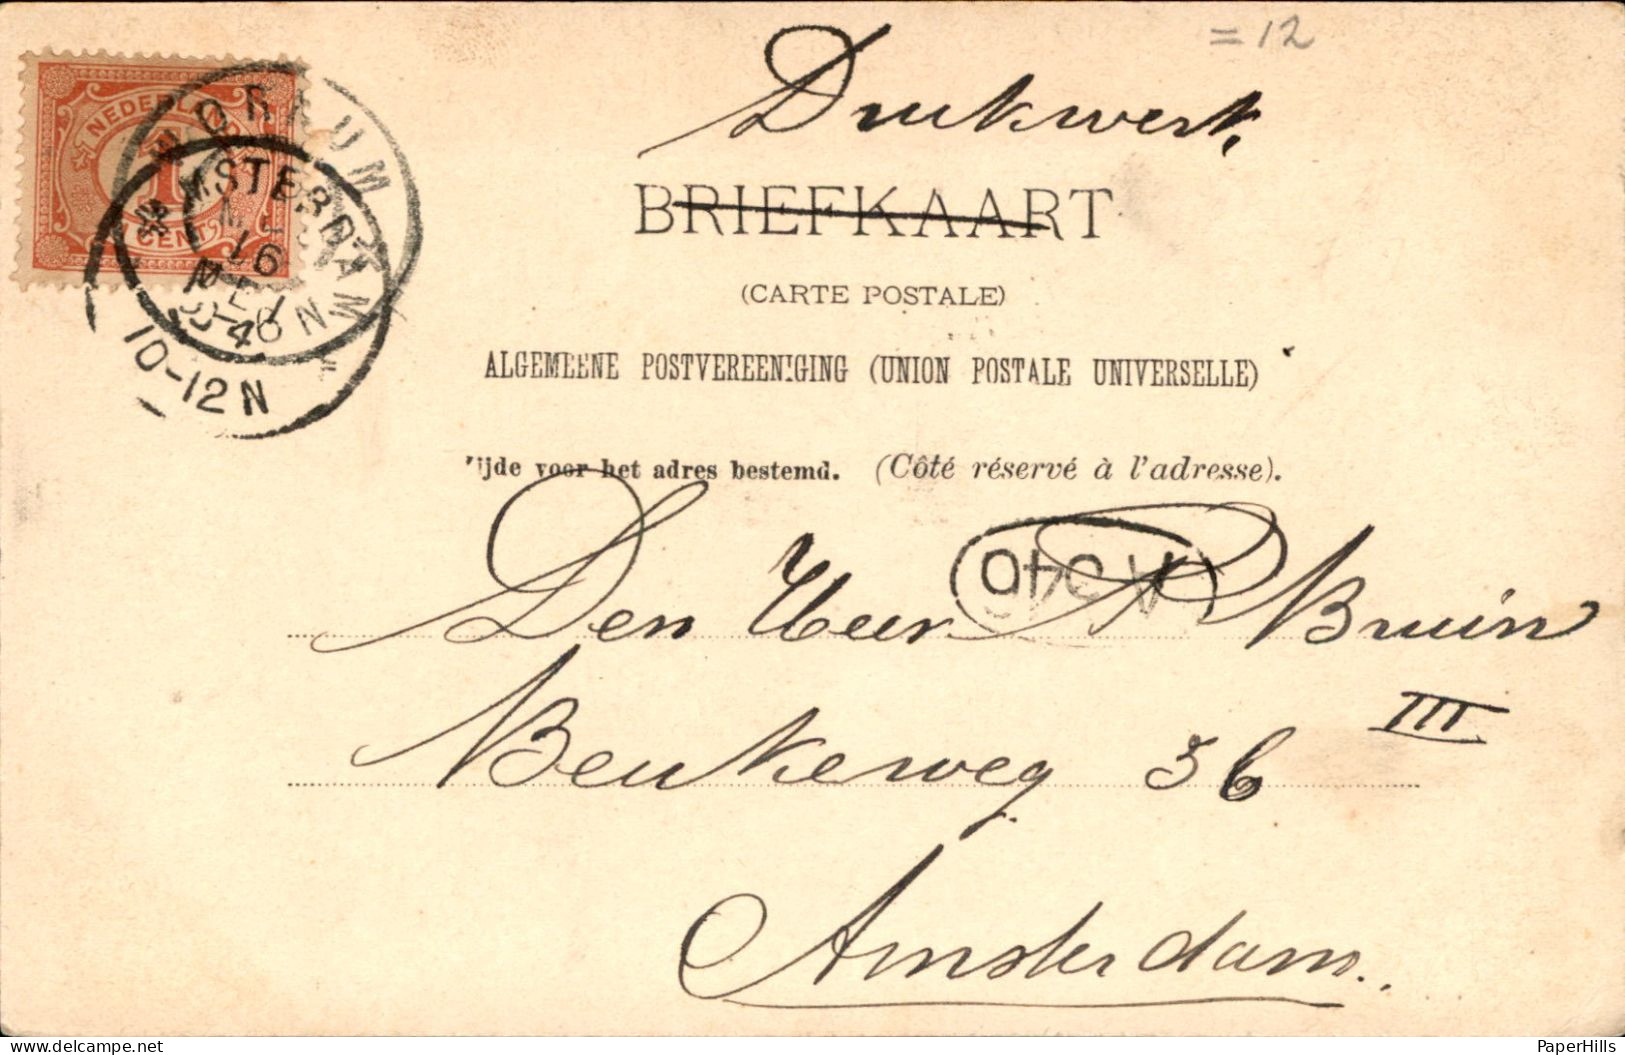 = 12
Drukwerk.
BRIEFKAART
(CARTE POSTALE)
ALGEMEENE POSTVEREENIGING (UNION POSTALE UNIVERSELLE)
ijde voor het adres bestemd. (Côté réservé à l'adresse).
NEDERLAND
1
CENT
WORKUM
AMSTERDAM
16
MEI
10-12N
A 340
Den Heer P Bruin
Beukeweg 36 III
Amsterdam.
PaperHills